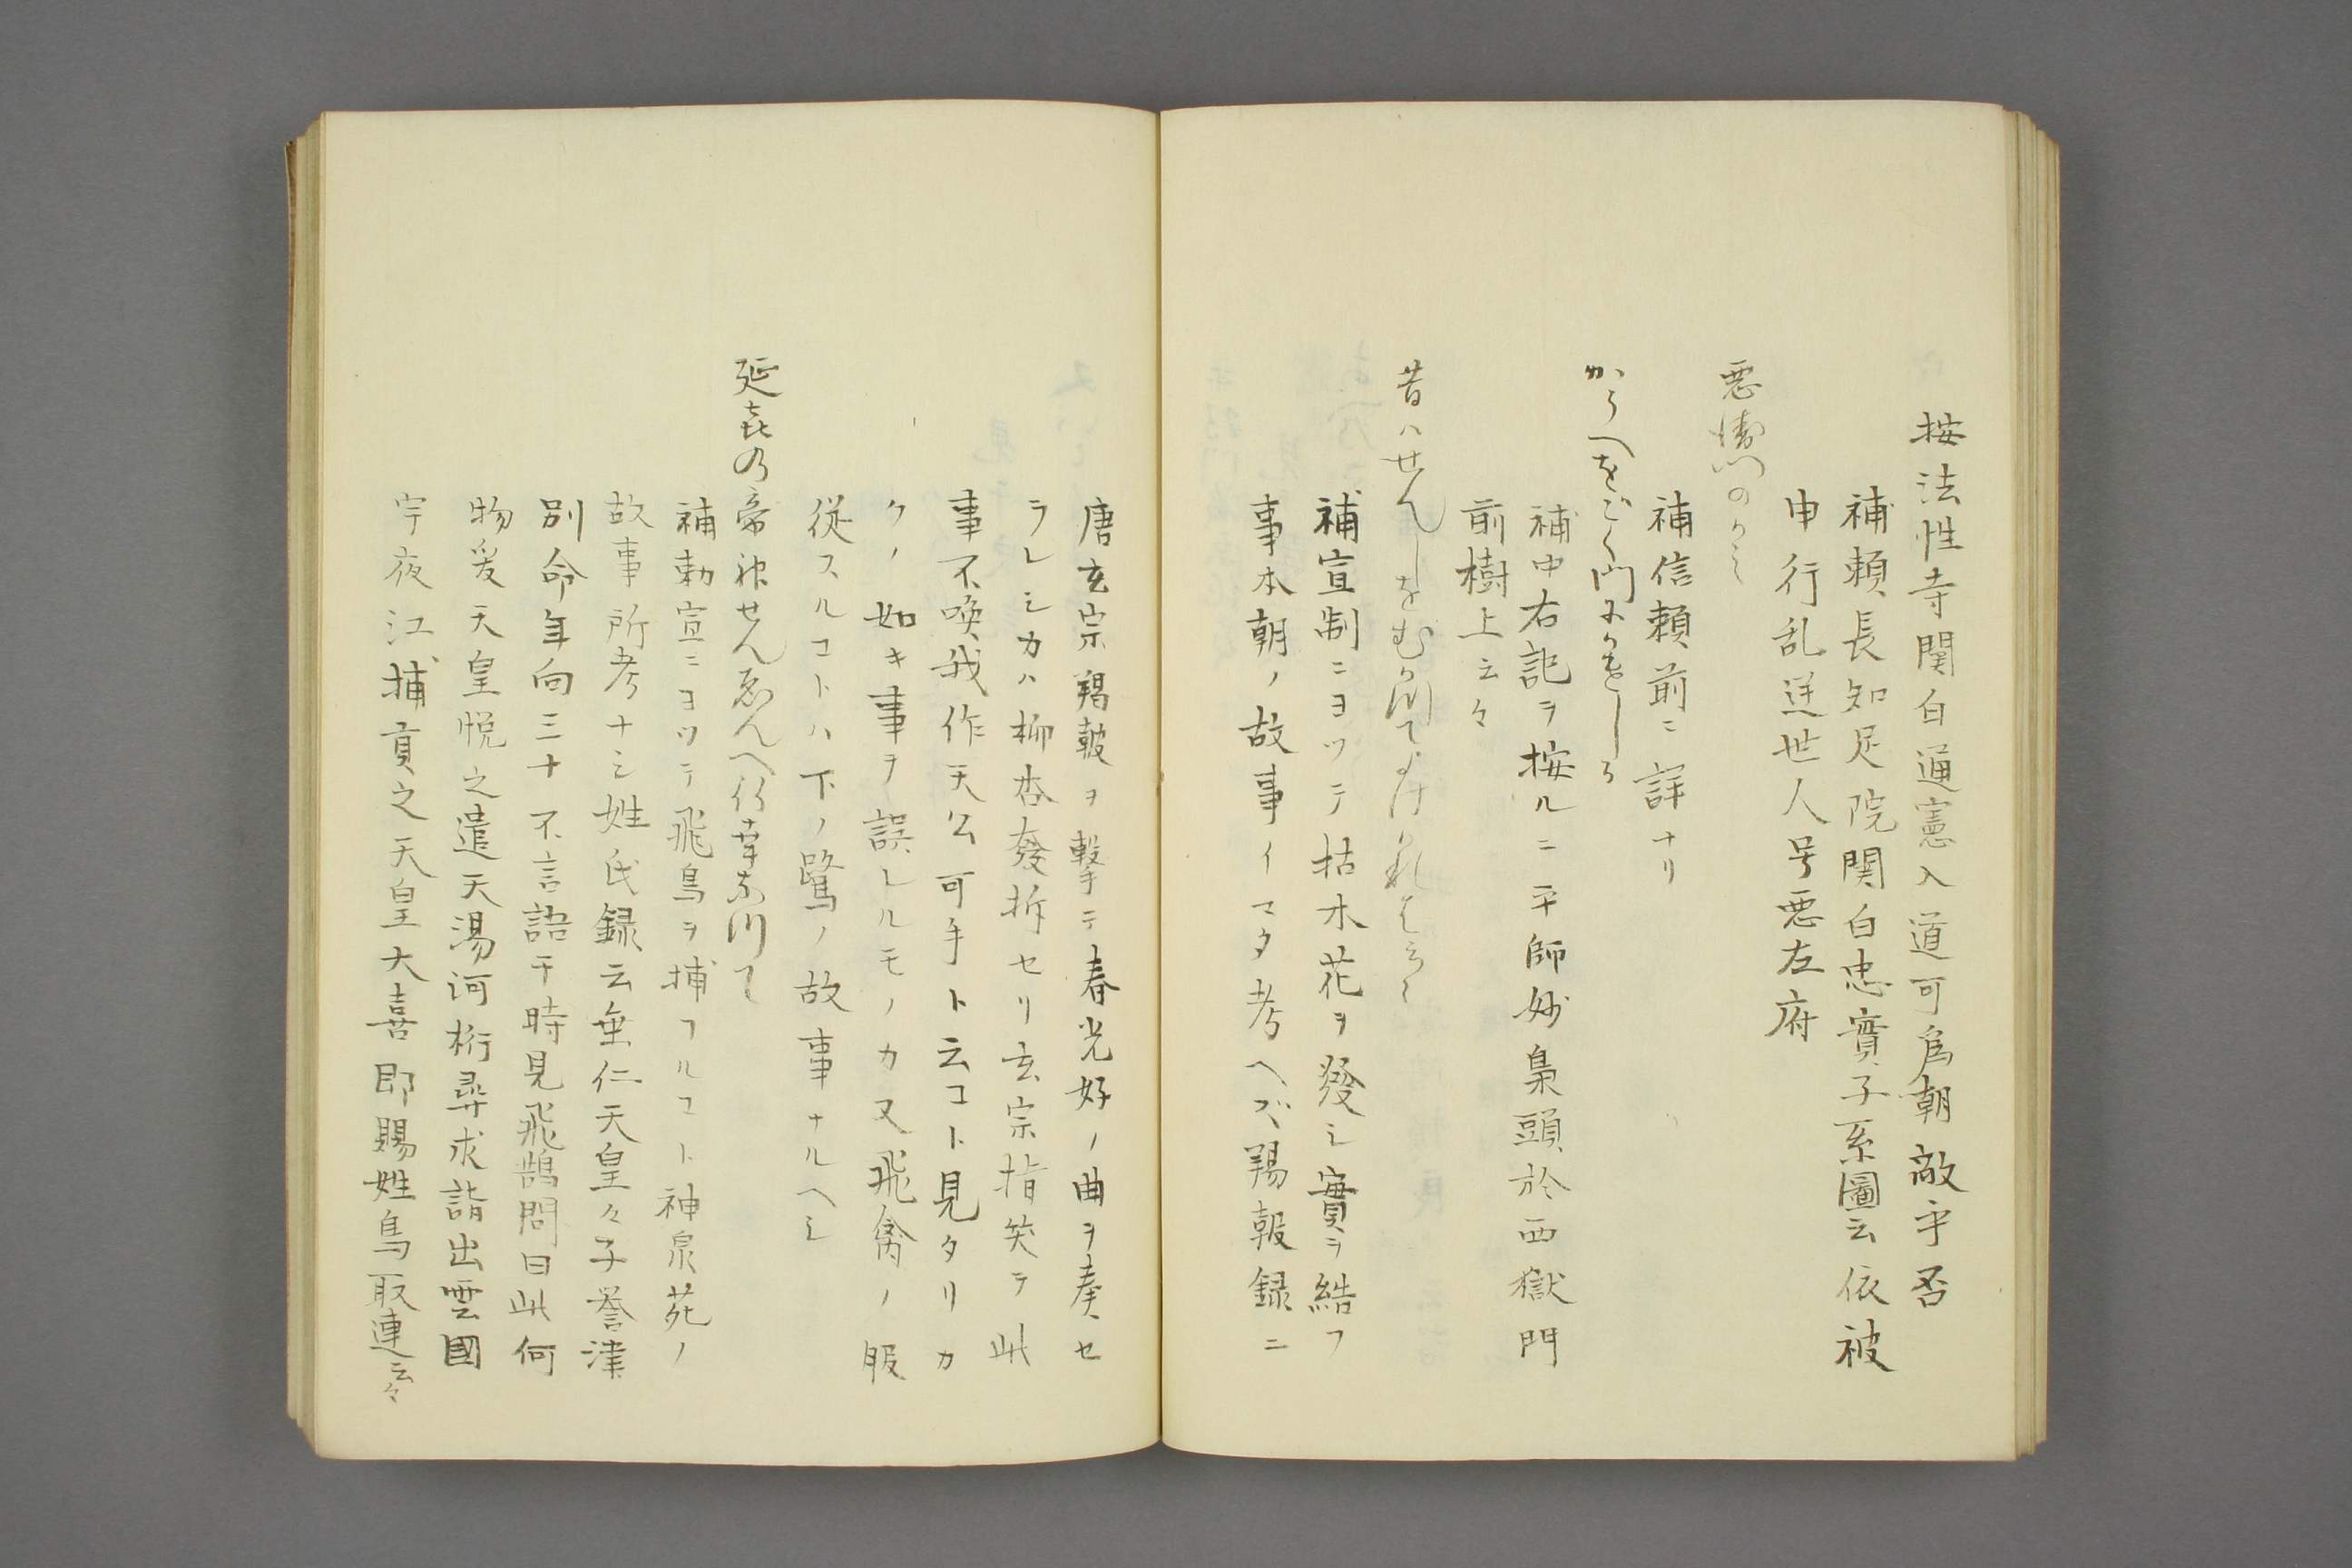 按法性寺関白通憲入道可為朝敵乎否
補頼長知足院関白忠實子系圖云依被
申行乱逆世人号悪左府
悪衛門のかミ
補信頼前ニ詳ナリ
かうへをごく門にかけしら
補中右記ヲ按ルニ平師妙梟頭於西獄門
前樹上云々
昔ハせんしをむかつて
補宣制ニヨツテ枯木花ヲ發シ實ヲ結フ
事本朝ノ故事イマタ考ヘズ羯鼓録ニ
唐玄宗羯鼓ヲ撃テ春光好ノ曲ヲ奏セ
ラレシカハ柳杏發拆セリ玄宗指笑テ此
事不喚我作天公可乎ト云コト見タリカ
クノ如キ事ヲ誤レルモノカ又飛禽ノ服
従スルコトハ下ノ鷺ノ故事ナルヘシ
延喜乃帝神せんゑんへ行幸なつて
補勅宣ニヨツテ飛鳥ヲ捕フルコト神泉苑ノ
故事所考ナシ姓氏録云垂仁天皇々子誉津
別命年向三十不言語于時見飛鵠問曰此何
物爰天皇悦之遣天湯河桁尋求詣出雲國
宇夜江捕貢之天皇大喜即賜姓鳥取連云々